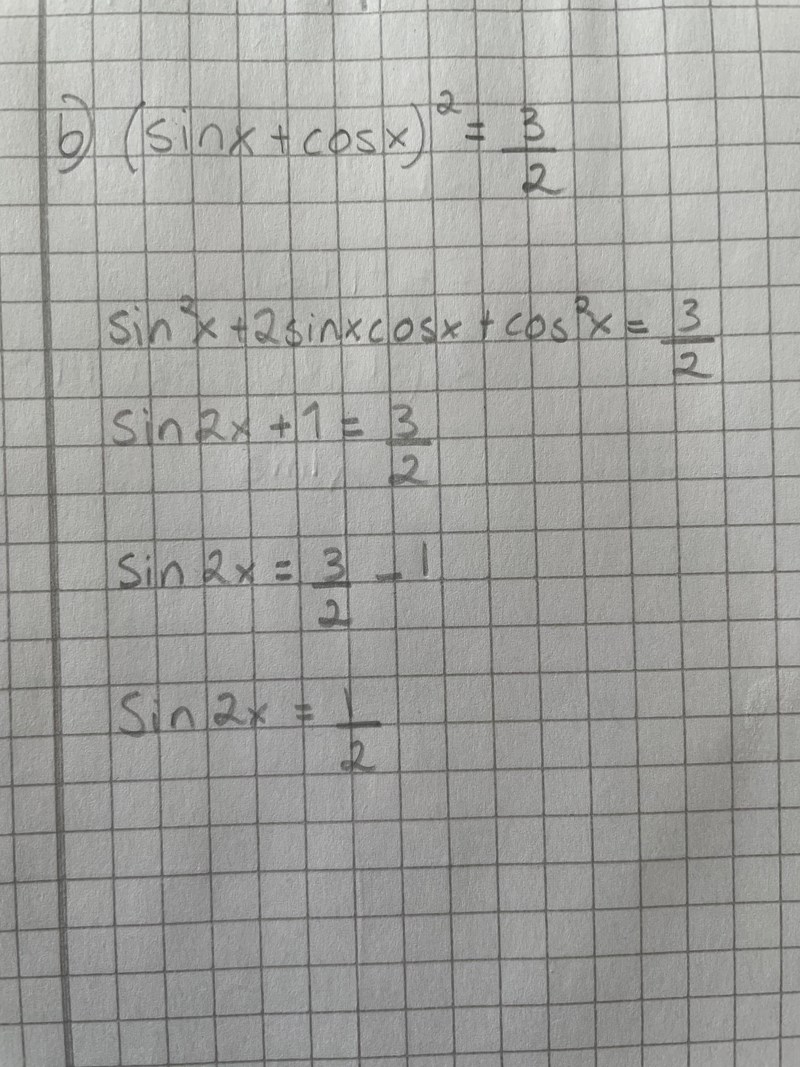 b) (sinx + cosx)² = 3/2
sin²x + 2sinxcosx + cos²x = 3/2
sin2x + 1 = 3/2
sin2x = 3/2 - 1
sin2x = 1/2